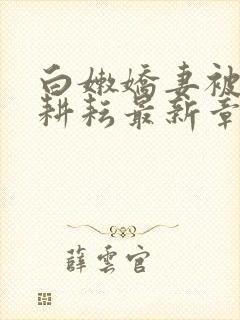 白嫩嬌妻被
耕耘最新章
薛雲官